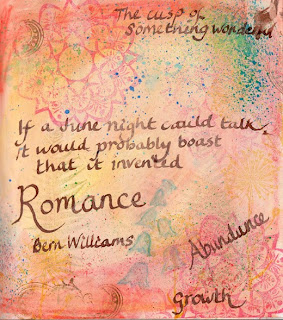 The cusp of
Something wonderful
If a June night could talk,
it would probably boast
that it invented
Romance
Bern Williams
Abundance
Growth